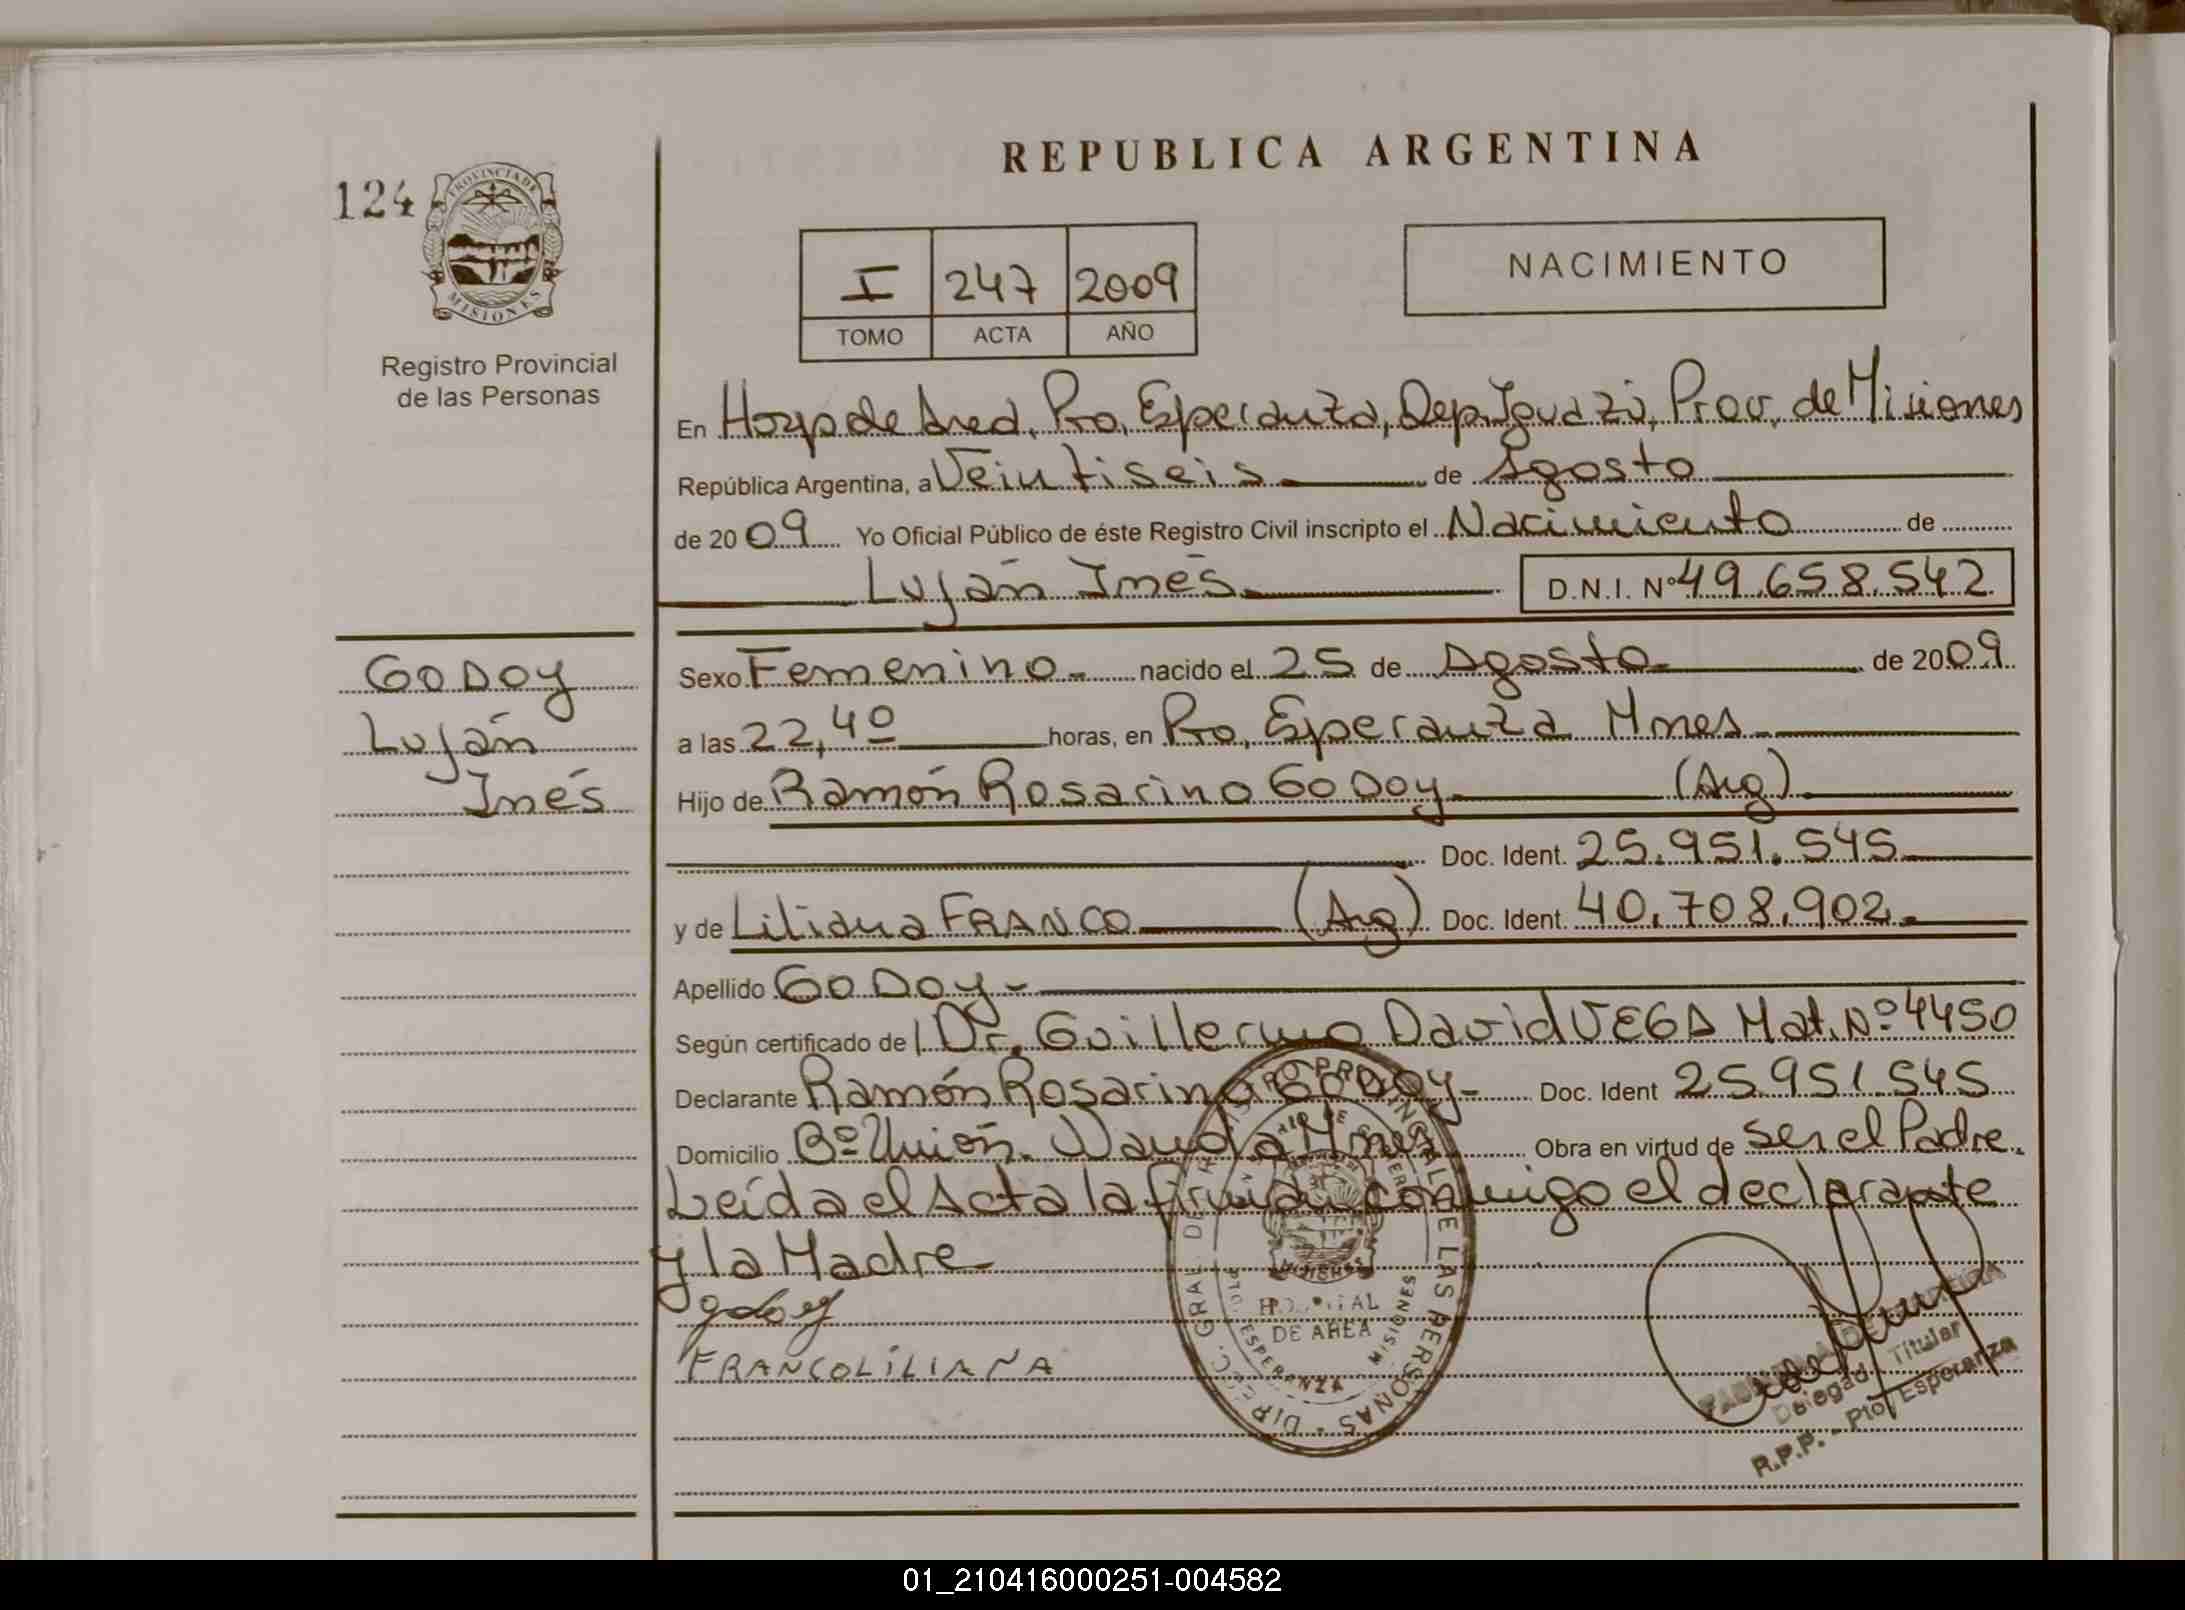 REPUBLICA ARGENTINA
124
PROVINCIA DE
MISIONES
Registro Provincial
de las Personas
I 247 2009
TOMO ACTA AÑO
NACIMIENTO
En Hosp de Area, Pto, Esperanza, Dep. Iguazú, Prov. de Misiones
República Argentina, a Veintiseis de Agosto
de 2009 Yo Oficial Público de éste Registro Civil inscripto el Nacimiento de
Luján Inés D.N.I. Nº 49.658.542
GODOY
Luján
Inés
Sexo Femenino nacido el 25 de Agosto de 2009
a las 22,40 horas, en Pto, Esperanza Mnes
Hijo de Ramón Rosarino GODOY (Arg)
Doc. Ident. 25.951.545
y de Liliana FRANCO (Arg) Doc. Ident. 40.708.902
Apellido GODOY
Según certificado de Dr. Guillermo David VEGA Mat. Nº 4450
Declarante Ramón Rosarino GODOY Doc. Ident 25.951.545
Domicilio Bº Unión. Wanda Mnes Obra en virtud de ser el Padre.
Leída el Acta la firma conmigo el declarante
y la Madre
godoy
FRANCO LILIANA
DIREC. GRAL. DE REGISTRO PROVINCIAL DE LAS PERSONAS
HOSPITAL
DE AREA
ESPERANZA MISIONES
Delegada Titular
R.P.P. - Pto. Esperanza
01_210416000251-004582